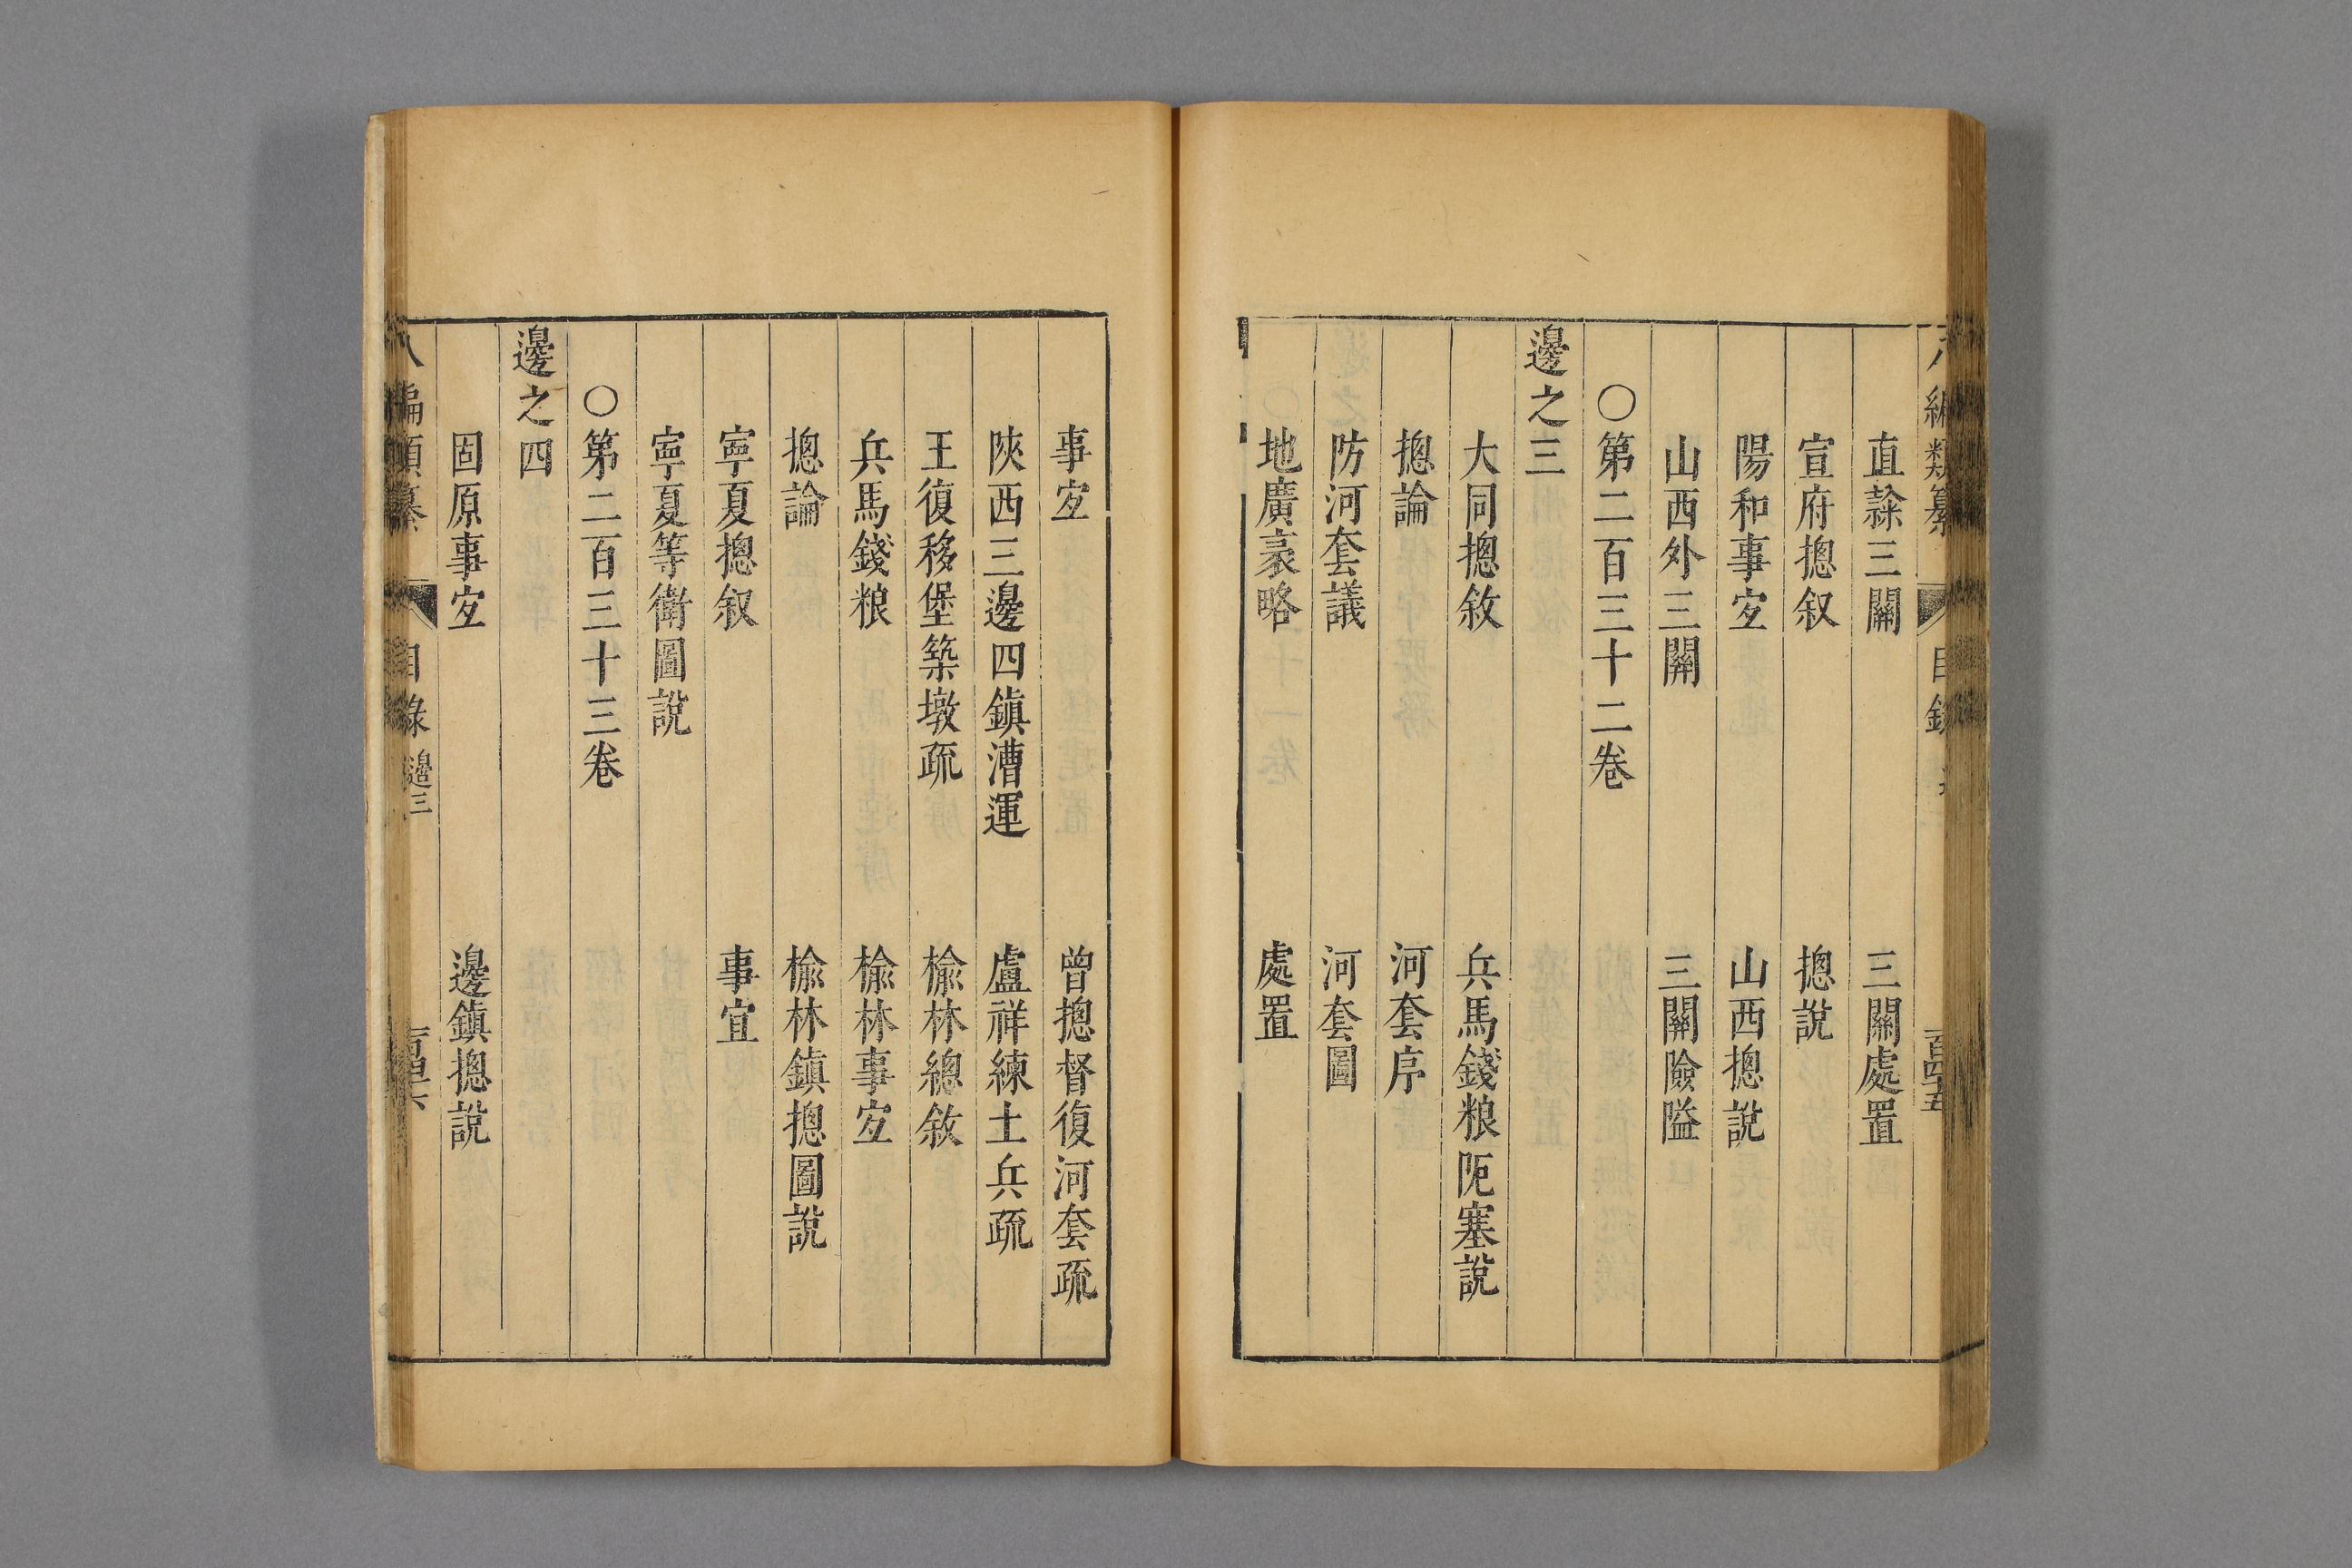 直隷三關 三關處置
宣府摠叙 摠說
陽和事㝎 山西摠說
山西外三關 三關險隘
○第二百三十二卷
邊之三
大同摠敘 兵馬錢粮阨塞說
摠論 河套序
防河套議 河套圖
地廣袤略 處置
事㝎 曾摠督復河套疏
陜西三邊四鎮漕運 盧祥練土兵疏
王復移堡築墩疏 榆林總敘
兵馬錢粮 榆林事㝎
摠論 榆林鎮摠圖說
寜夏摠叙 事宜
寜夏等衛圖說
○第二百三十三卷
邊之四
固原事㝎 邊鎮摠說
八編類纂 目錄 邊三